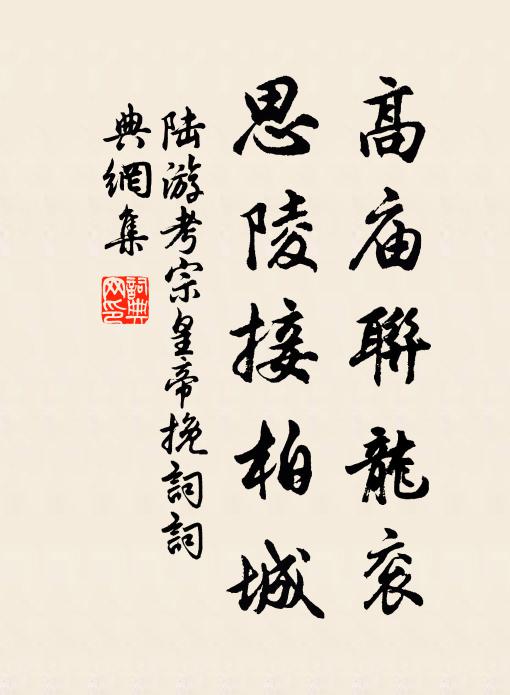 高庙聯龍衮
思陵接柏城
陆游考宗皇帝挽詞詞
典網集
詞典
网印